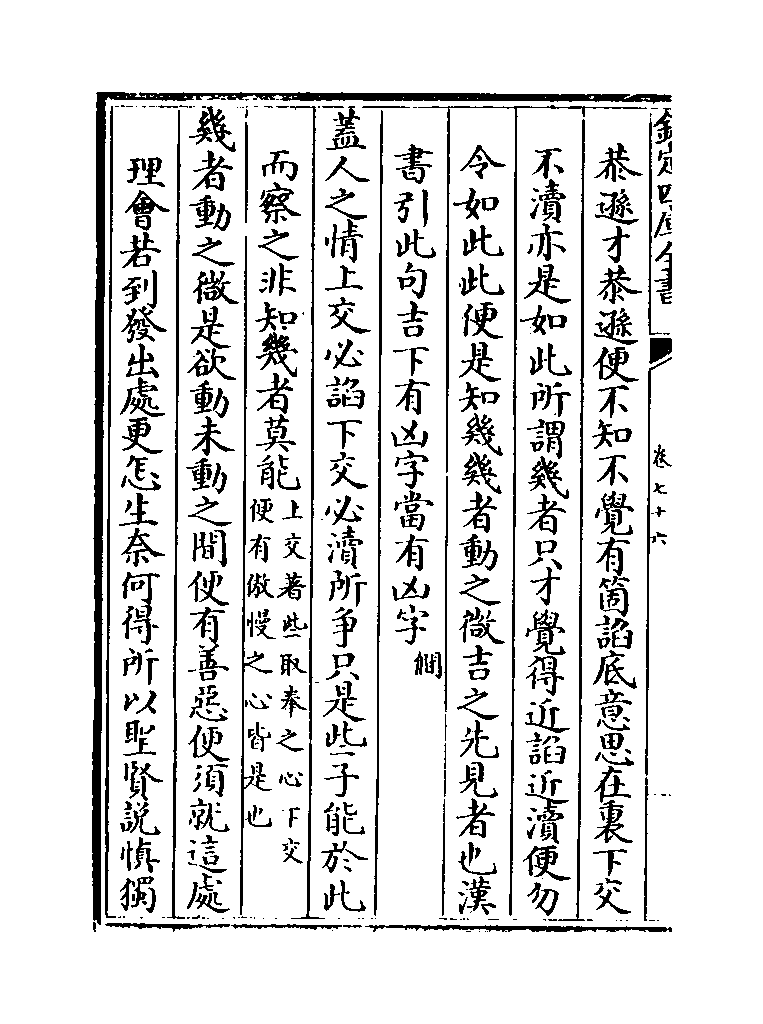 欽定四庫全書
卷七十六
恭遜才恭遜便不知不覺有箇諂底意思在裏下交
不瀆亦是如此所謂幾者只才覺得近諂近瀆便勿
令如此此便是知幾幾者動之微吉之先見者也漢
書引此句吉下有凶字當有凶字僩
蓋人之情上交必諂下交必瀆所爭只是些子能於此
而察之非知幾者莫能上交著些取奉之心下交
便有傲慢之心皆是也
幾者動之微是欲動未動之間便有善惡便須就這處
理會若到發出處更怎生奈何得所以聖賢説慎獨